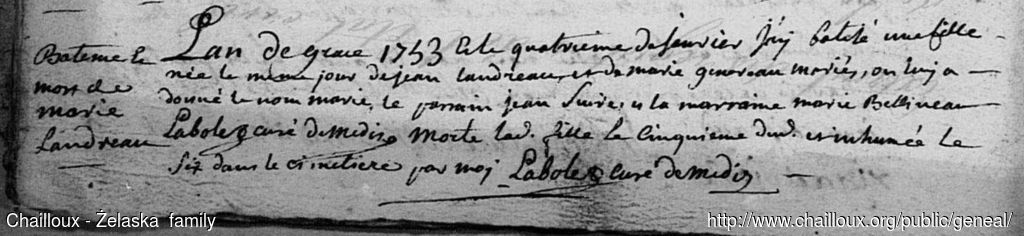 Bateme et
mort de
marie
Landreau
Lan de grace 1753 Et le quatrieme de Janvier J'ai batisé une fille
née le meme jour de jean landreau, et de marie gonreau mariés, on luy a
donné le nom marie, le parrain jean Suire, et la marraine marie Bellineau
Labole curé de medis, Morte lad. fille le Cinquieme dud. et inhumée le
six dans le cimetiere par moy Labole curé de medis
Chailloux - Żelaska family
http://www.chailloux.org/public/geneal/